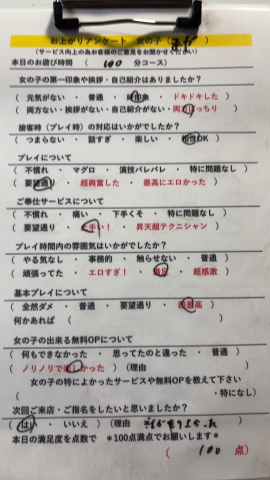 お上がりアンケート 女の子（
（サービス向上の為お客様のご意見をお聞かせください）
本日のお遊び時間 （ 100 分コース）
女の子の第一印象や挨拶・自己紹介はありましたか？
（ 元気がない ・ 普通 ・ 好印象 ・ ドキドキした ）
（ 両方ない・挨拶がない・自己紹介がない・両方ばっちり ）
接客時（プレイ時）の対応はいかがでしたか？
（ つまらない ・ 話すぎ ・ 楽しい ・ 相性OK ）
プレイについて
（ 不慣れ ・ マグロ ・ 演技バレバレ ・ 特に問題なし ）
（ 要望通り ・ 超興奮した ・ 最高にエロかった ）
ご奉仕サービスについて
（ 不慣れ ・ 痛い ・ 下手くそ ・ 特に問題なし ）
（ 要望通り ・ 上手い！ ・ 昇天超テクニシャン ）
プレイ時間内の雰囲気はいかがでしたか？
（ やる気なし ・ 事務的 ・ 触らせない ・ 普通 ）
（ 頑張ってた ・ エロすぎ！ ・ 満足 ・ 超感激 ）
基本プレイについて
（ 全然ダメ ・ 普通 ・ 要望通り ・ 超最高 ）
何かあれば （ ）
女の子の出来る無料OPについて
（ 何もできなかった ・ 思ってたのと違った ・ 普通 ）
（ ノリノリで楽しかった ） （理由 ）
女の子の特によかったサービスや無料OPを教えて下さい
（ ・特になし）
次回ご来店・ご指名をしたいと思いましたか？
（ はい ・ いいえ ） （理由
本日の満足度を点数で ＊100点満点でお願いします＊
（ 100 点）